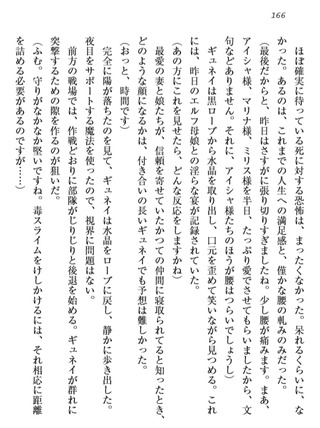 166
ほぼ確実に待っている死に対する恐怖は、まったくなかった。呆れるくらいに、な
かった。あるのは、これまでの人生への満足感と、僅かな腰の軋みのみだった。
(最後だからと、昨日はさすがに張り切りすぎましたね。少し腰が痛みます。まあ、
アイシャ様、マリナ様、ミリス様を半日、たっぷり愛でさせてもらいましたから、文
句などありません。それに、アイシャ様たちのほうが腰はつらいでしょうし)
ギュネイは黒ローブから水晶を取り出し、口元を歪めて笑いながら見つめる。これ
には、昨日のエルフ母娘との淫らな宴が記録されていた。
(あの方にこれを見せたら、どんな反応をしますかね)
最愛の妻と娘たちが、信頼を寄せていたかつての仲間に寝取られてると知ったとき、
どのような顔になるかは、付き合いの長いギュネイでも予想は難しかった。
(おっと、時間です)
完全に陽が落ちたのを見て、ギュネイは水晶をローブに戻し、静かに歩き出した。
夜目をサポートする魔法を使ったので、視界に問題はない。
前方の戦場では、作戦どおりに部隊がじりじりと後退を始める。ギュネイが群れに
突撃するための隙を作るのが狙いだ。
(ふむ。守りがなかなか堅いですね。毒スライムをけしかけるには、それ相応に距離
を詰める必要があるのですが……)